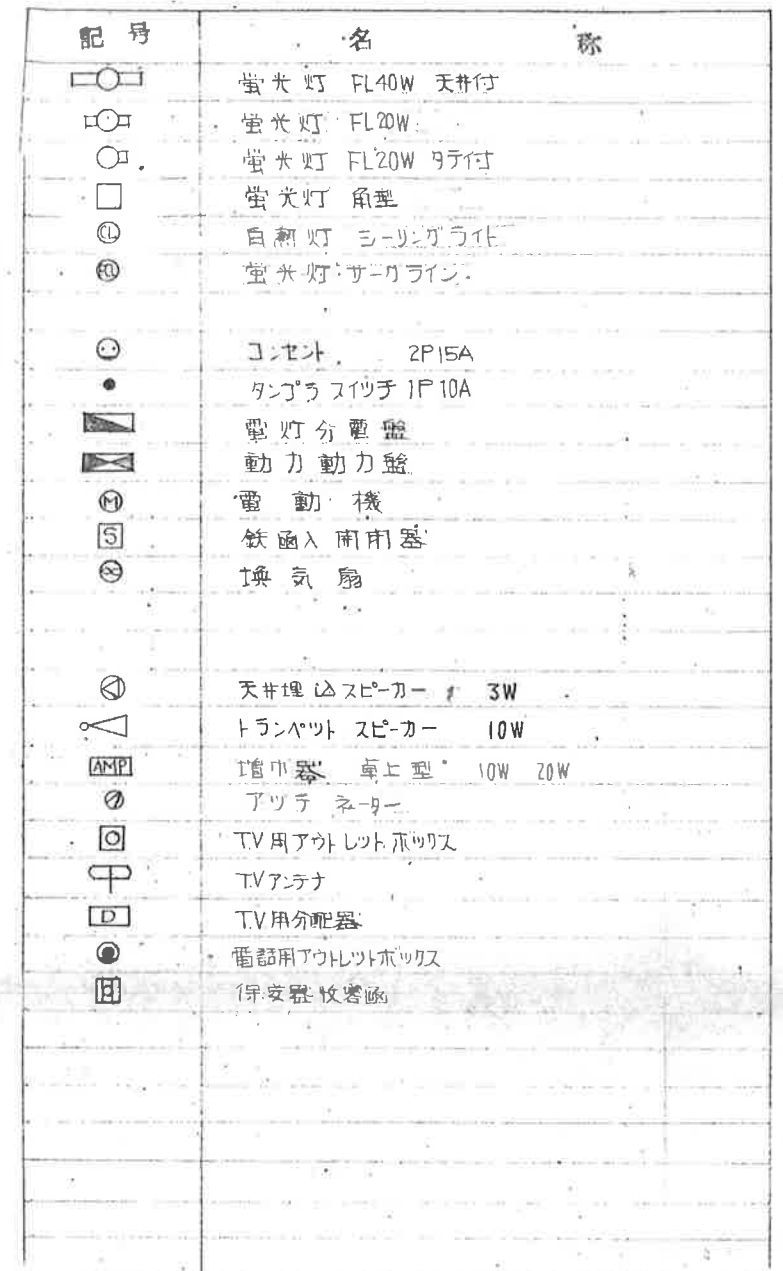 記号 名称
蛍光灯 FL40W 天井付
蛍光灯 FL20W
蛍光灯 FL20W タテ付
蛍光灯 角型
CL 白熱灯 シーリングライト
FCL 蛍光灯 サークライン
コンセント 2P15A
タンブラスイッチ 1P10A
電灯分電盤
動力動力盤
M 電動機
S 鉄函入開閉器
換気扇
天井埋込スピーカー 3W
トランペット スピーカー 10W
AMP 増巾器 卓上型 10W 20W
アッテネーター
T.V用アウトレットボックス
T.Vアンテナ
D T.V用分配器
電話用アウトレットボックス
保安器収容函